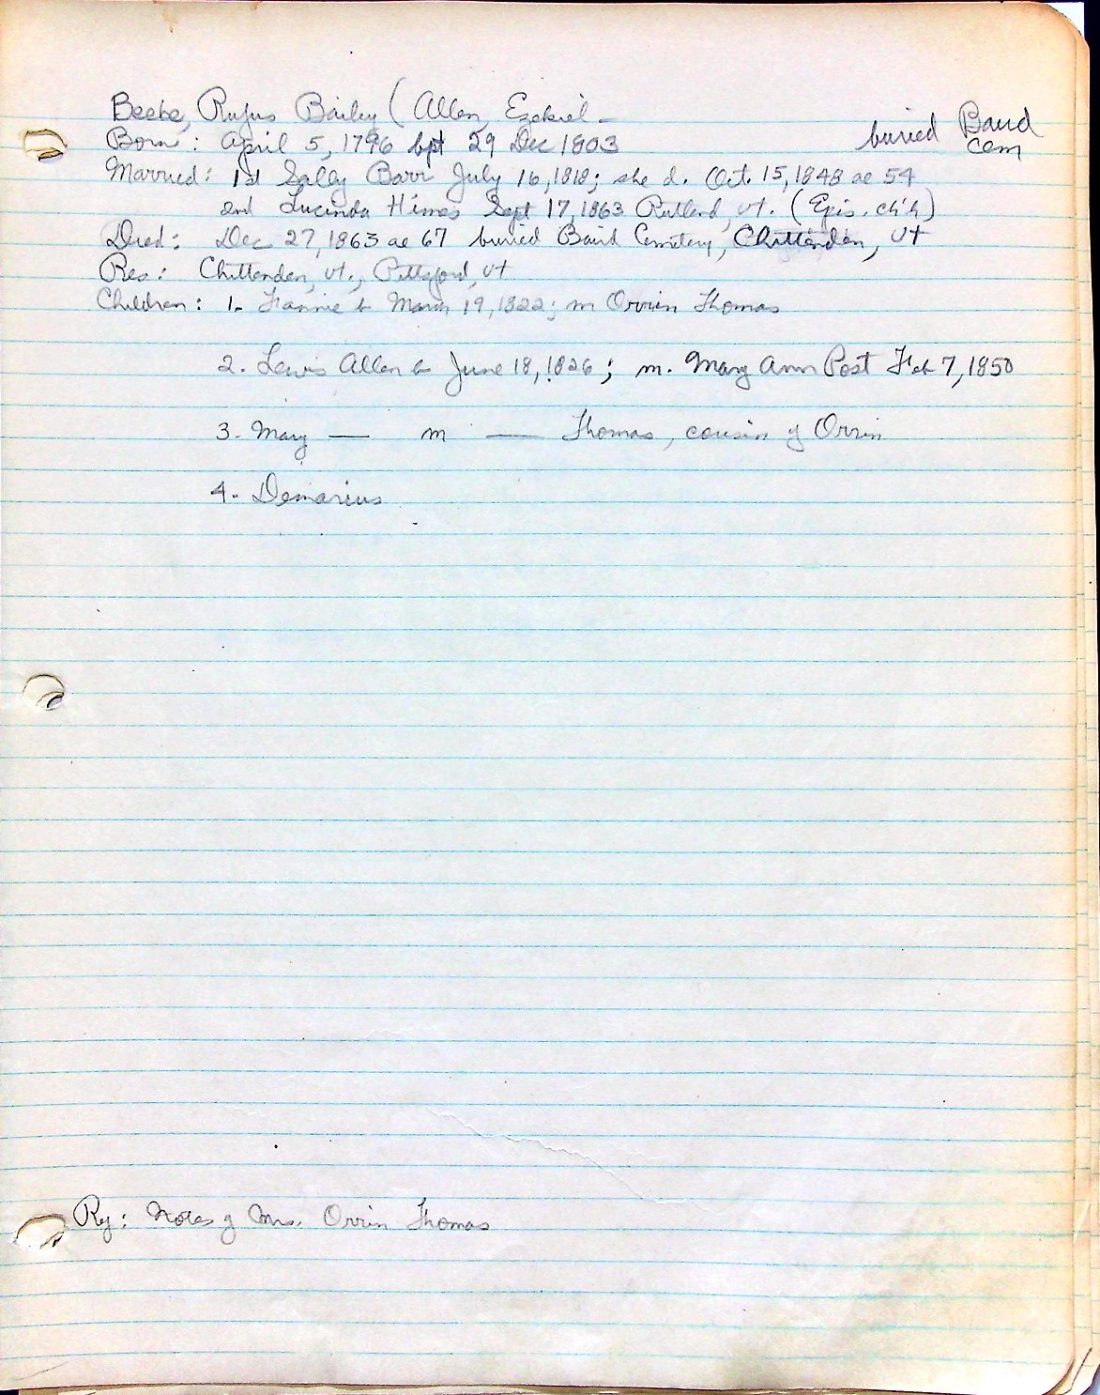 Beebe, Rufus Bailey (Allen, Ezekiel -
Born: April 5, 1796 bpt 29 Dec 1803
buried Baird Cem
Married: 1st Sally Barr July 16, 1818; she d. Oct. 15, 1848 ae 54
2nd Lucinda Himes Sept 17, 1863 Rutland, Vt. (Epis. ch'h)
Died: Dec 27, 1863 ae 67 buried Baird Cemetery, Chittenden, Vt
Res: Chittenden, Vt., Pittsford, Vt
Children: 1. Fannie b March 19, 1822; m Orvin Thomas
2. Lewis Allen b June 18, 1826; m. Mary Ann Post Feb 7, 1850
3. Mary — m — Thomas, cousin of Orvin
4. Demarius
Notes of Mrs. Orvin Thomas